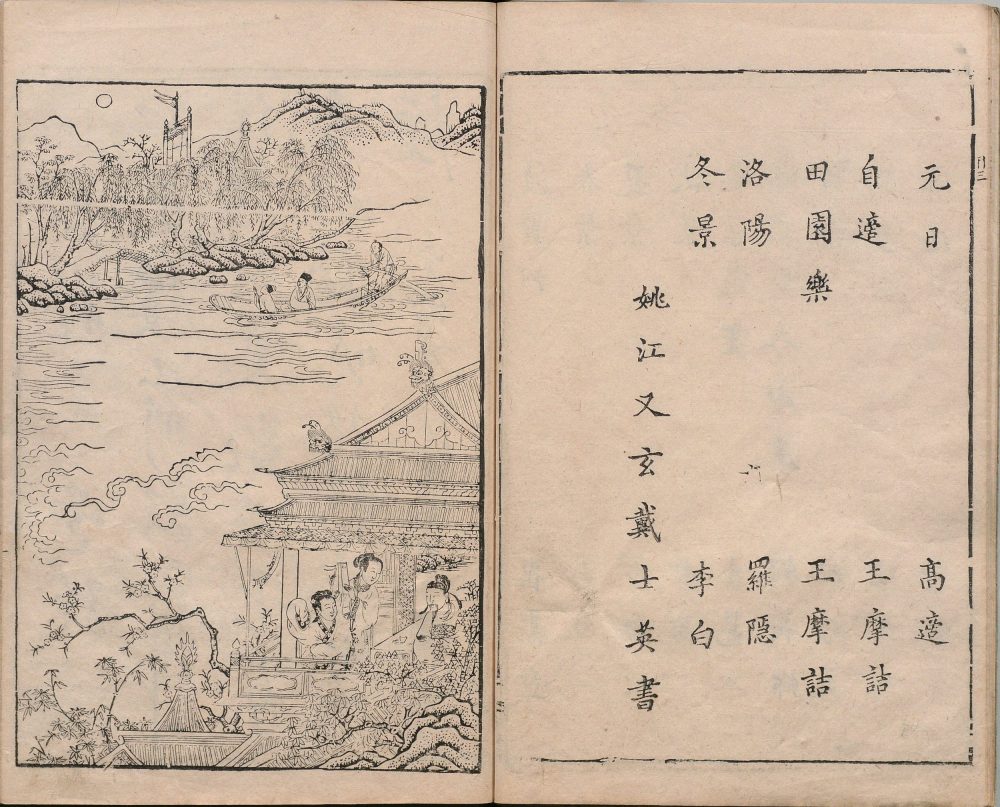 元日 高適
自遣 王摩詰
田園樂 王摩詰
洛陽 羅隱
冬景 李白
姚江又玄戴士英書